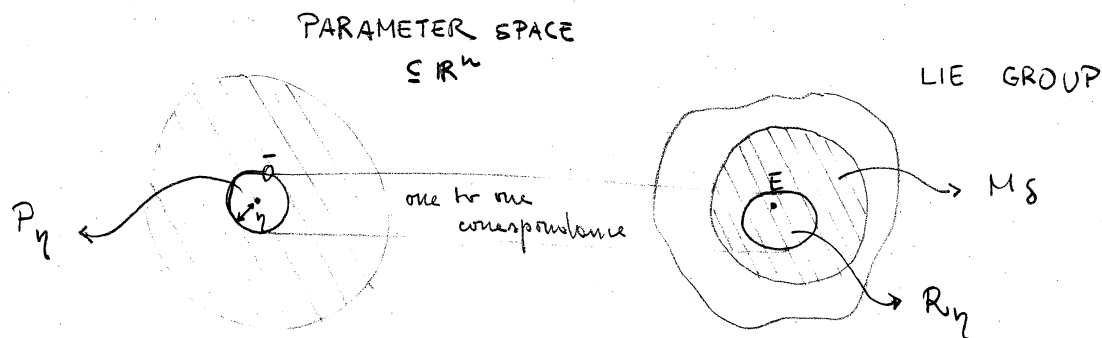 PARAMETER SPACE
⊆ ℝⁿ
LIE GROUP
0̄
E
one to one
correspondance
η
Mδ
Pη
Rη